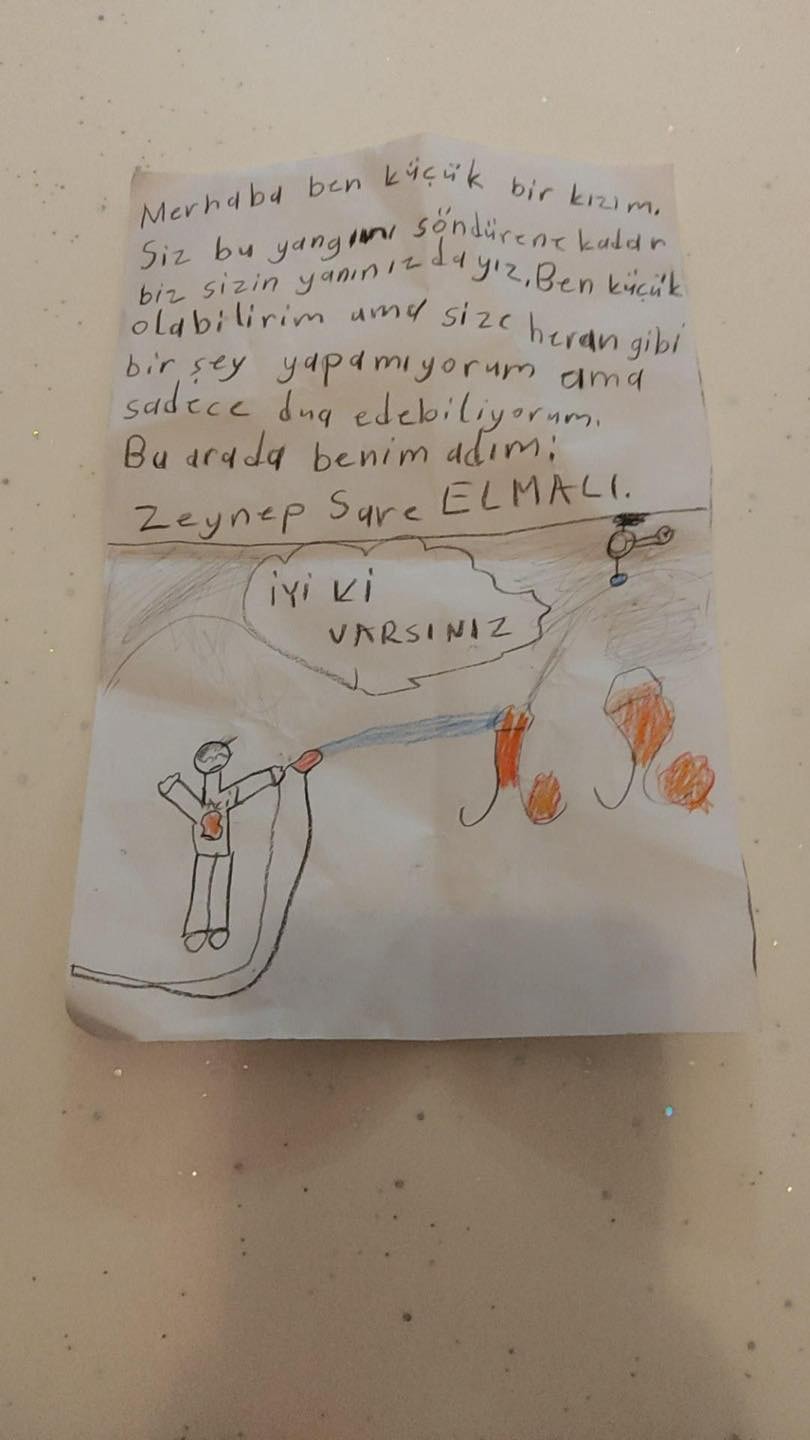 Merhaba ben küçük bir kızım.
Siz bu yangını söndürene kadar
biz sizin yanınızdayız. Ben küçük
olabilirim ama size heran gibi
bir şey yapamıyorum ama
sadece dua edebiliyorum.
Bu arada benim adım:
Zeynep Sare ELMALI.
İYİ Kİ
VARSINIZ